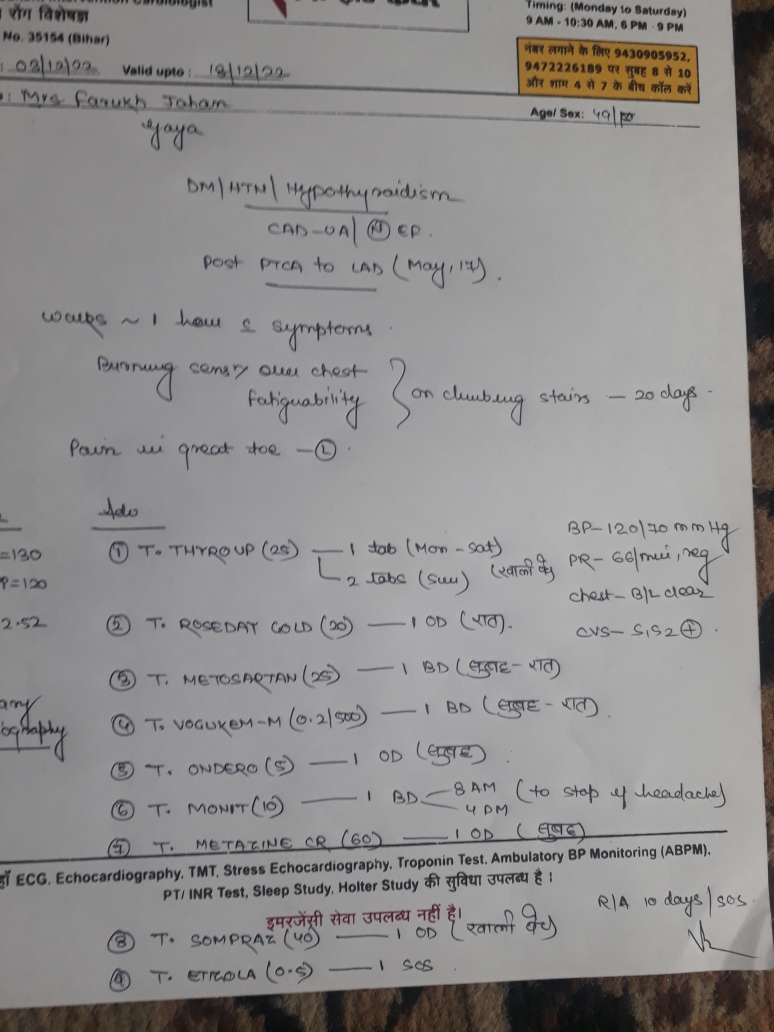 Cardiologist
रोग विशेषज्ञ
No. 35154 (Bihar)
Timing: (Monday to Saturday)
9 AM - 10:30 AM, 6 PM - 9 PM
नंबर लगाने के लिए 9430905952,
9472226189 पर सुबह 8 से 10
और शाम 4 से 7 के बीच कॉल करें
: 03/12/22 Valid upto : 18/12/22
: Mrs Farukh Jahan
Age/ Sex: 49/
Gaya
DM/HTN/Hypothyroidism
CAD-UA/ Ⓝ EF.
Post PTCA to LAD (May, 17).
Walks ~ 1 hour symptoms.
Burning over chest
Fatiguability
on climbing stairs — 20 days.
Pain in great toe — Ⓛ.
Adv
=130
P=120
2.52
BP-120/70 mmHg
PR- 66/min, reg
chest- B/L clear
CVS- S1S2 ⊕.
① T. THYROUP (25) — 1 tab (Mon-Sat)
2 tabs (Sun) (खाली पेट)
② T. ROSEDAY GOLD (20) — 1 OD (रात).
③ T. METOSARTAN (25) — 1 BD (सुबह-रात)
④ T. VOGLIKEM-M (0.2/500) — 1 BD (सुबह-रात).
⑤ T. ONDERO (5) — 1 OD (सुबह).
⑥ T. MONIT (10) — 1 BD 8 AM
4 PM (to stop if headache)
⑦ T. METAZINE CR (60) — 1 OD (सुबह)
ECG, Echocardiography, TMT, Stress Echocardiography, Troponin Test, Ambulatory BP Monitoring (ABPM),
PT/ INR Test, Sleep Study, Holter Study की सुविधा उपलब्ध है।
इमरजेंसी सेवा उपलब्ध नहीं है।
R/A 10 days/SOS.
⑧ T. SOMPRAZ (40) — 1 OD (खाली पेट)
⑨ T. ETIZOLA (0.5) — 1 SOS.